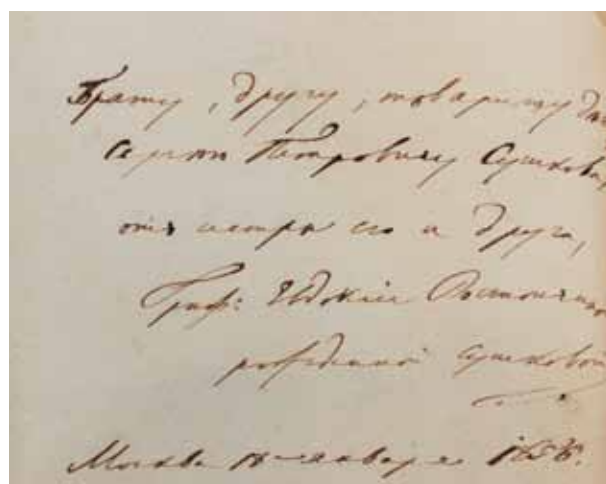 Брату, другу, товарищу
Сергею Петровичу Сушкову
отъ сестры его и друга,
Граф: Евдокіи Растопчиной
рожденной Сушковой
Москва января 1856.